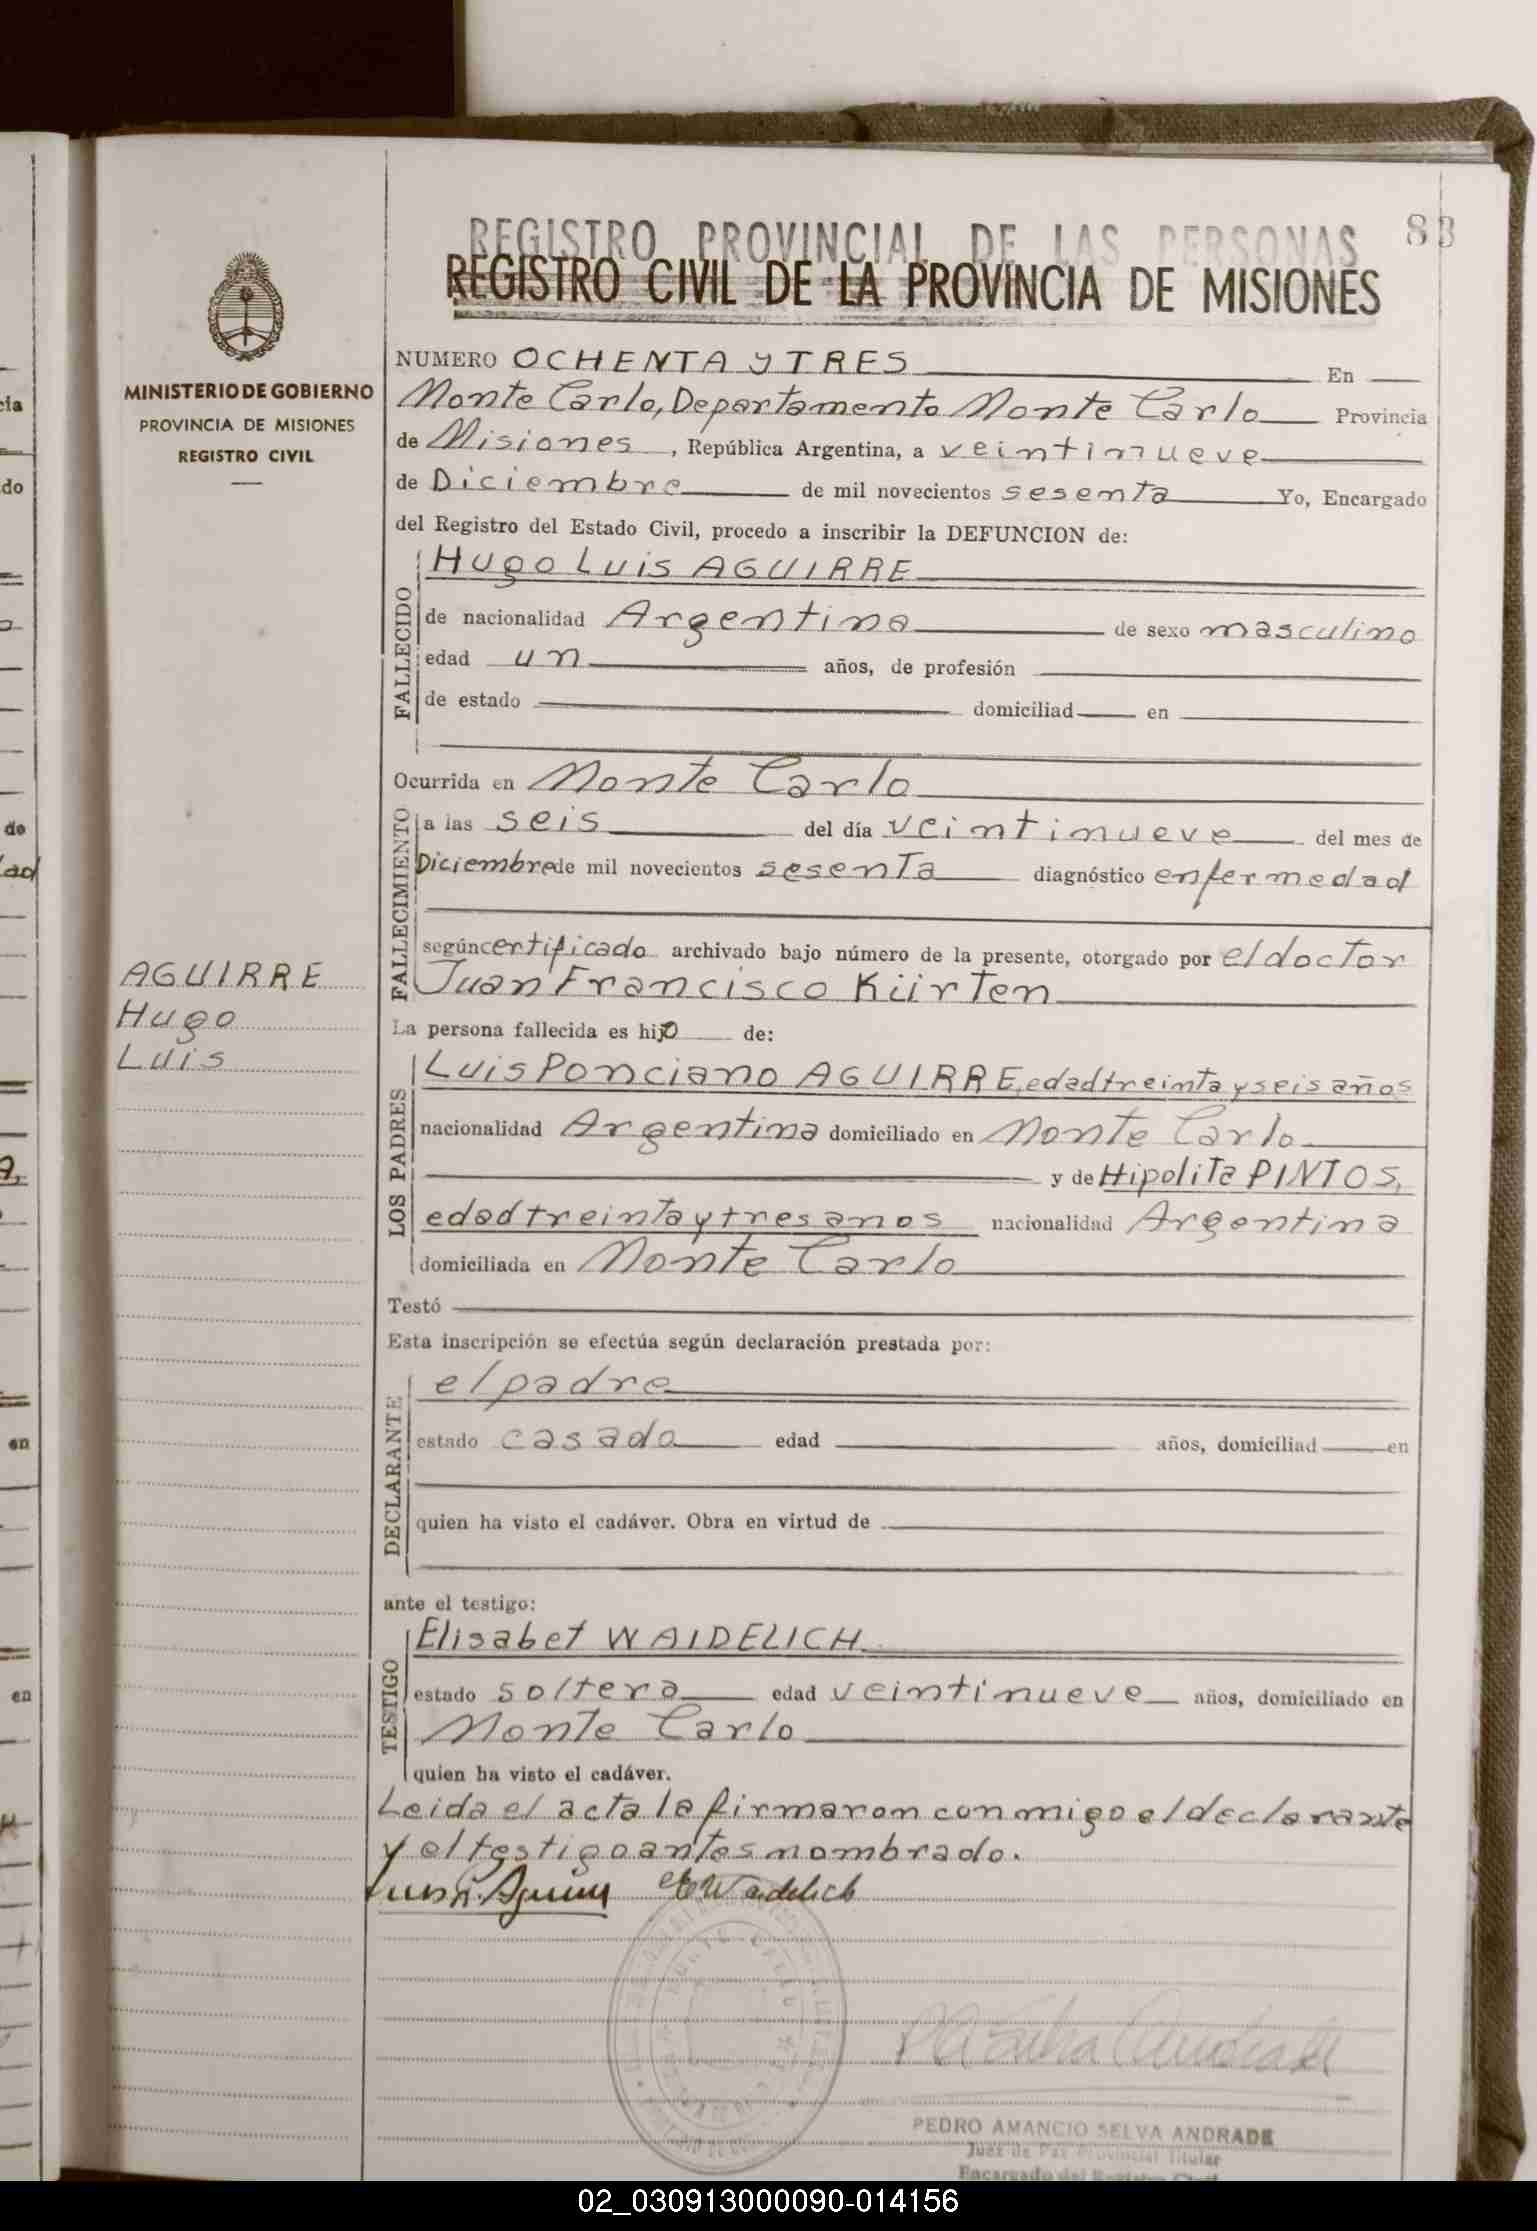 REGISTRO PROVINCIAL DE LAS PERSONAS
83
REGISTRO CIVIL DE LA PROVINCIA DE MISIONES
MINISTERIO DE GOBIERNO
PROVINCIA DE MISIONES
REGISTRO CIVIL
NUMERO OCHENTA y TRES En
Monte Carlo, Departamento Monte Carlo Provincia
de Misiones, República Argentina, a veintinueve
de Diciembre de mil novecientos sesenta Yo, Encargado
del Registro del Estado Civil, procedo a inscribir la DEFUNCION de:
FALLECIDO
Hugo Luis AGUIRRE
de nacionalidad Argentina de sexo masculino
edad un años, de profesión
de estado domiciliad en
Ocurrida en Monte Carlo
FALLECIMIENTO
a las seis del día veintinueve del mes de
Diciembre de mil novecientos sesenta diagnóstico enfermedad
según certificado archivado bajo número de la presente, otorgado por el doctor
Juan Francisco Kürten
AGUIRRE
Hugo
Luis
La persona fallecida es hijo de:
LOS PADRES
Luis Ponciano AGUIRRE, edad treinta y seis años
nacionalidad Argentina domiciliado en Monte Carlo
y de Hipolita PINTOS,
edad treinta y tres anos nacionalidad Argentina
domiciliada en Monte Carlo
Testó
Esta inscripción se efectúa según declaración prestada por:
DECLARANTE
el padre
estado casado edad años, domiciliad en
quien ha visto el cadáver. Obra en virtud de
ante el testigo:
TESTIGO
Elisabet WAIDELICH
estado soltera edad veintinueve años, domiciliado en
Monte Carlo
quien ha visto el cadáver.
Leida el acta la firmaron conmigo el declarante
y el testigo antes nombrado.
Luis P. Aguirre E. Waidelich
PEDRO AMANCIO SELVA ANDRADE
Juez de Paz Provincial Titular
Encargado del Registro Civil
02_030913000090-014156